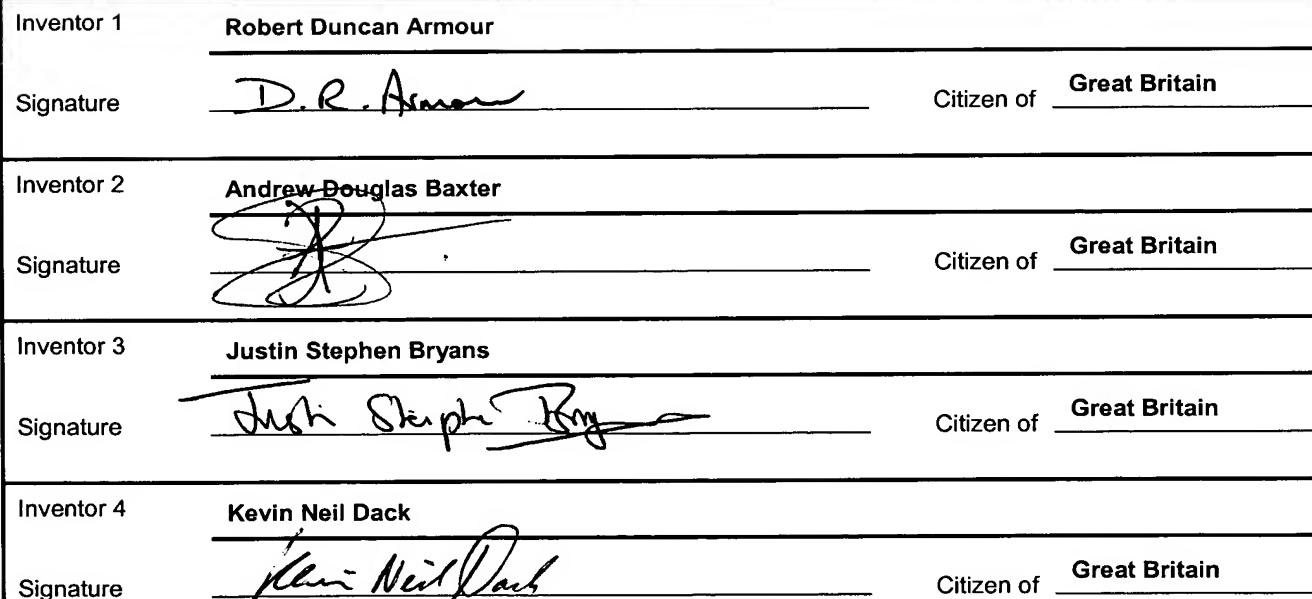 Inventor 1 Robert Duncan Armour
Signature D. R. Armour Citizen of Great Britain
Inventor 2 Andrew Douglas Baxter
Signature Citizen of Great Britain
Inventor 3 Justin Stephen Bryans
Signature Justin Stephen Bry Citizen of Great Britain
Inventor 4 Kevin Neil Dack
Signature Kevin Neil Dack Citizen of Great Britain